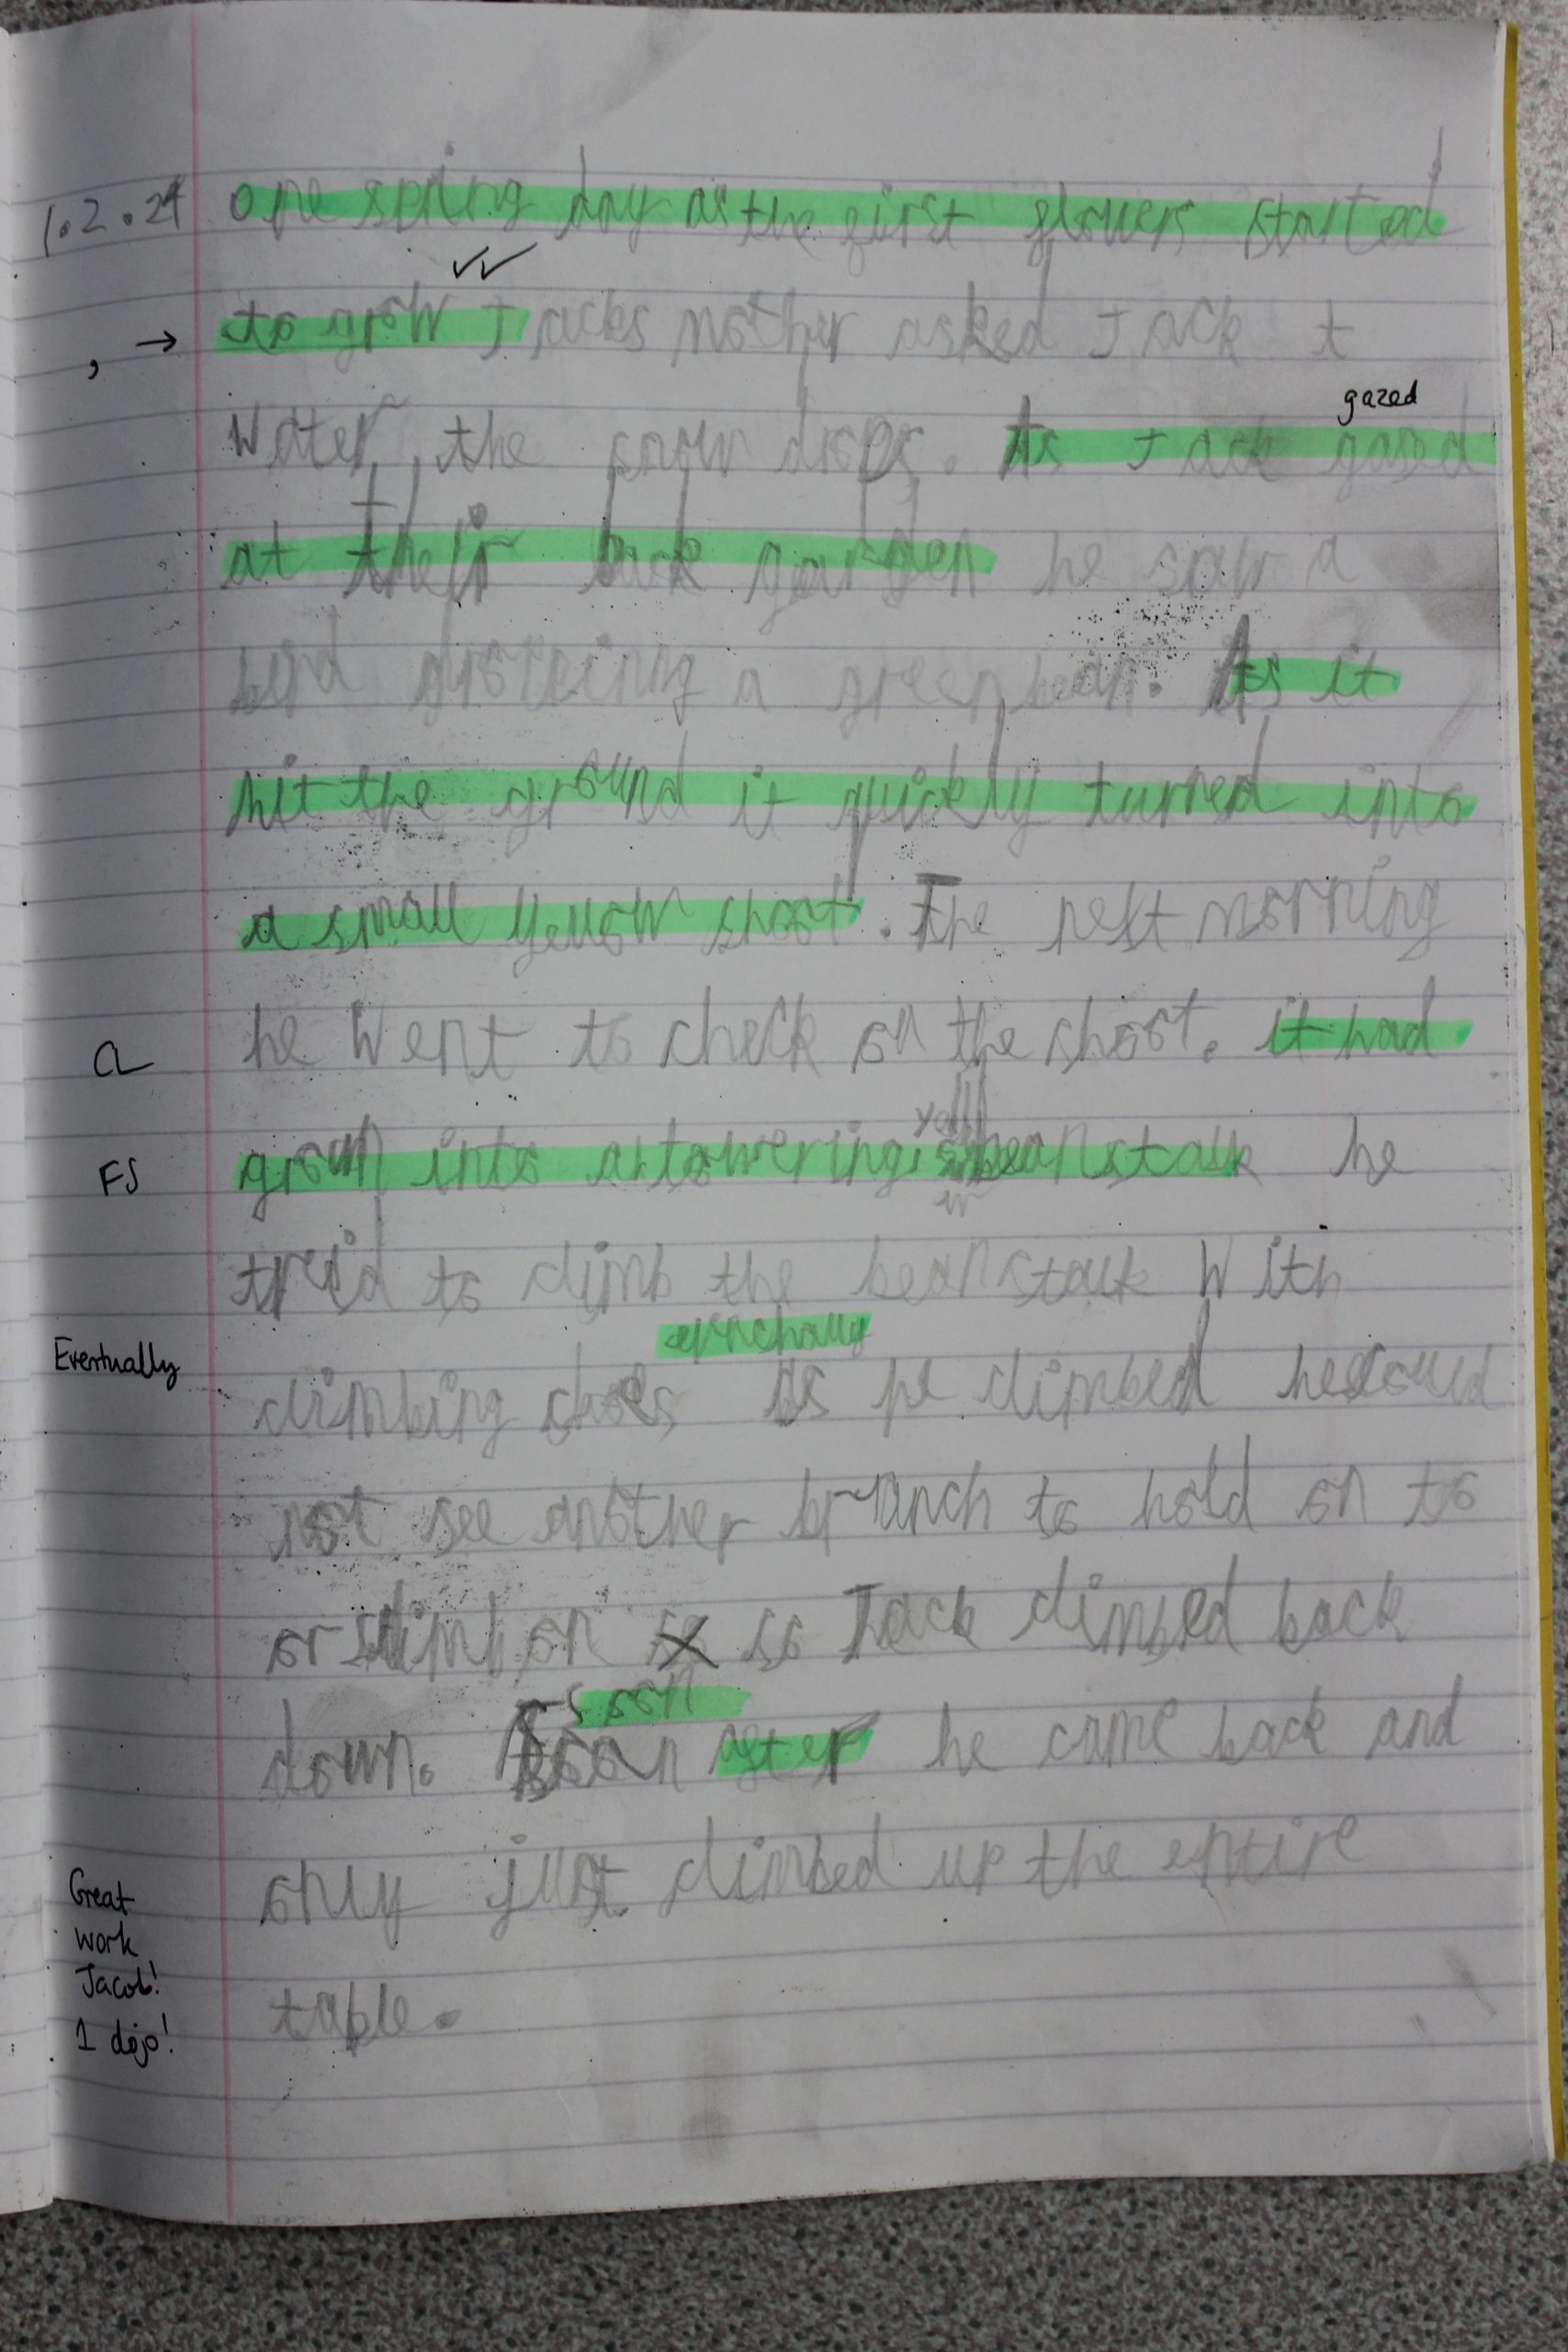 1.2.24 one spring day as the first flowers started
to grow Jacks mother asked Jack t
, →
gazed
Water the snow drops. As Jack gased
at their back garden he saw a
bird a green bean. As it
hit the ground it quickly turned into
a small yellow shoot. The next morning
he went to check on the shoot. it had
CL
grown into a towering beanstalk he
FS
treid to climb the beanstalk With
evnchally
Eventually
climbing shoes As he climbed he coud
not see another branch to hold on to
or climb on so Jack climbed back
soon
down. after he came back and
only just climbed up the entire
table.
Great
work
Jacob!
1 dojo!